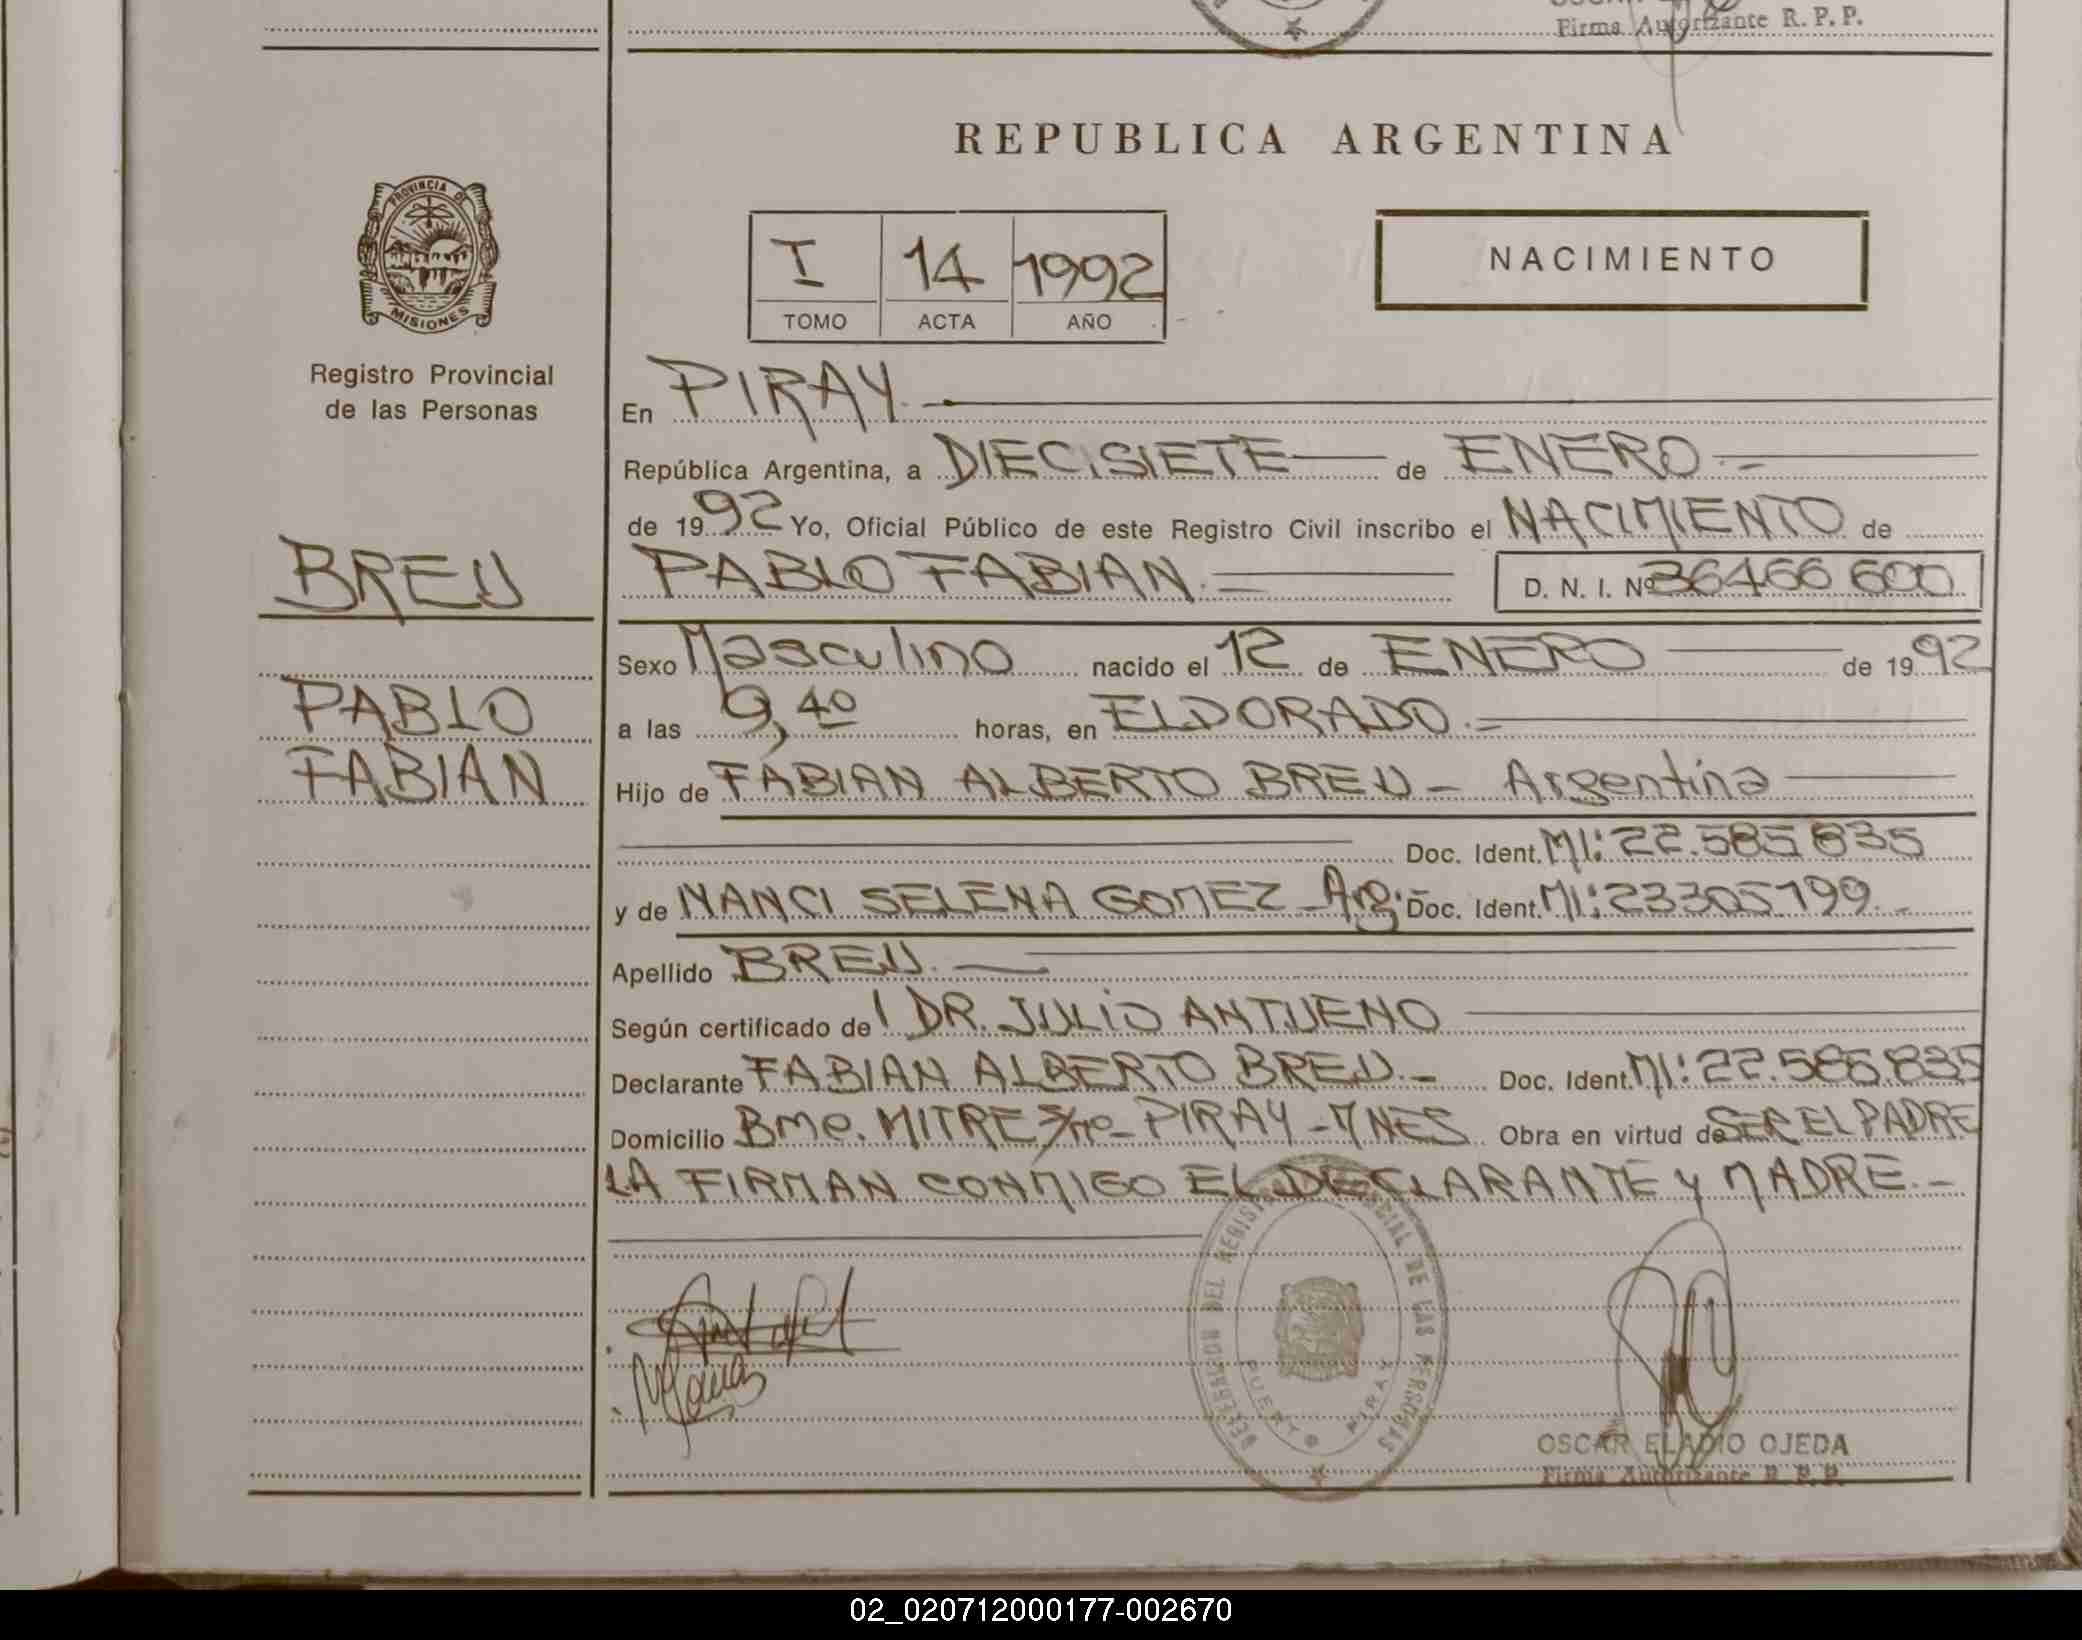 Firma Autorizante R. P. P.
REPUBLICA ARGENTINA
PROVINCIA DE
MISIONES
Registro Provincial
de las Personas
I 14 1992
TOMO ACTA AÑO
NACIMIENTO
En PIRAY.
República Argentina, a DIECISIETE de ENERO
de 19 92 Yo, Oficial Público de este Registro Civil inscribo el NACIMIENTO de
BREU
PABLO FABIAN. D. N. I. Nº 36466 600
Sexo Masculino nacido el 12 de ENERO de 19 92
PABLO
a las 9,40 horas, en ELDORADO.-
FABIAN
Hijo de FABIAN ALBERTO BREU - Argentina
Doc. Ident. MI: 22.585 835
y de NANCI SELENA GOMEZ - Arg. Doc. Ident. MI: 23305799.-
Apellido BREU.
Según certificado de DR. JULIO ANTUENO
Declarante FABIAN ALBERTO BREU.- Doc. Ident. MI: 22.585.835
Domicilio Bme. MITRE S/nº - PIRAY - MNES Obra en virtud de SER EL PADRE
LA FIRMAN CONMIGO EL DECLARANTE Y MADRE.-
DELEGACION DEL REGISTRO PROVINCIAL DE LAS PERSONAS
PUERTO PIRAY
OSCAR ELADIO OJEDA
Firma Autorizante R. P. P.
02_020712000177-002670